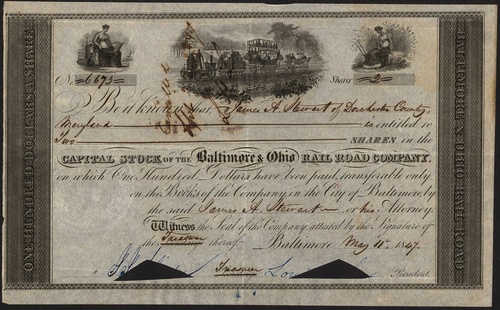 No. 6673 Shares 2
Be it known that James A. Stewart of Dorchester County
Maryland is entitled to
Two SHARES in the
CAPITAL STOCK OF THE Baltimore & Ohio RAIL ROAD COMPANY,
on which One Hundred Dollars have been paid, transferable only
on the Books of the Company, in the City of Baltimore, by
the said James A. Stewart or his Attorney.
Witness the Seal of the Company, attested by the Signature of
the Treasurer thereof Baltimore May 11th 1847.
Treasurer Lou President.
ONE HUNDRED DOLLARS A SHARE
BALTIMORE & OHIO RAIL ROAD